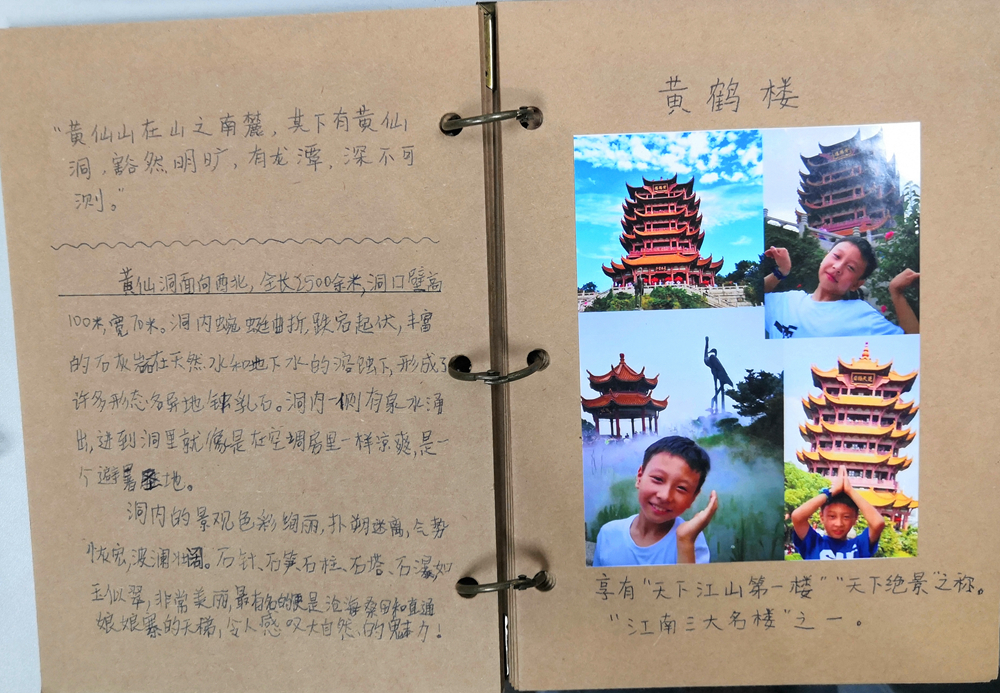 “黄仙山在山之南麓，其下有黄仙
洞，豁然明旷，有龙潭，深不可
测。”
黄仙洞面向西北，全长2500余米，洞口壁高
100米，宽70米。洞内蜿蜒曲折，跌宕起伏，丰富
的石灰岩在天然水和地下水的溶蚀下，形成了
许多形态各异地钟乳石。洞内一侧有泉水涌
出，进到洞里就像是在空调房里一样凉爽，是一
个避暑圣地。
洞内的景观色彩绚丽，扑朔迷离，气势
恢宏，波澜壮阔。石针、石笋、石柱、石塔、石瀑，如
玉似翠，非常美丽，最有名的便是沧海桑田和直通
娘娘寨的天梯，令人感叹大自然的魅力！
黄鹤楼
享有“天下江山第一楼”“天下绝景”之称。
“江南三大名楼”之一。